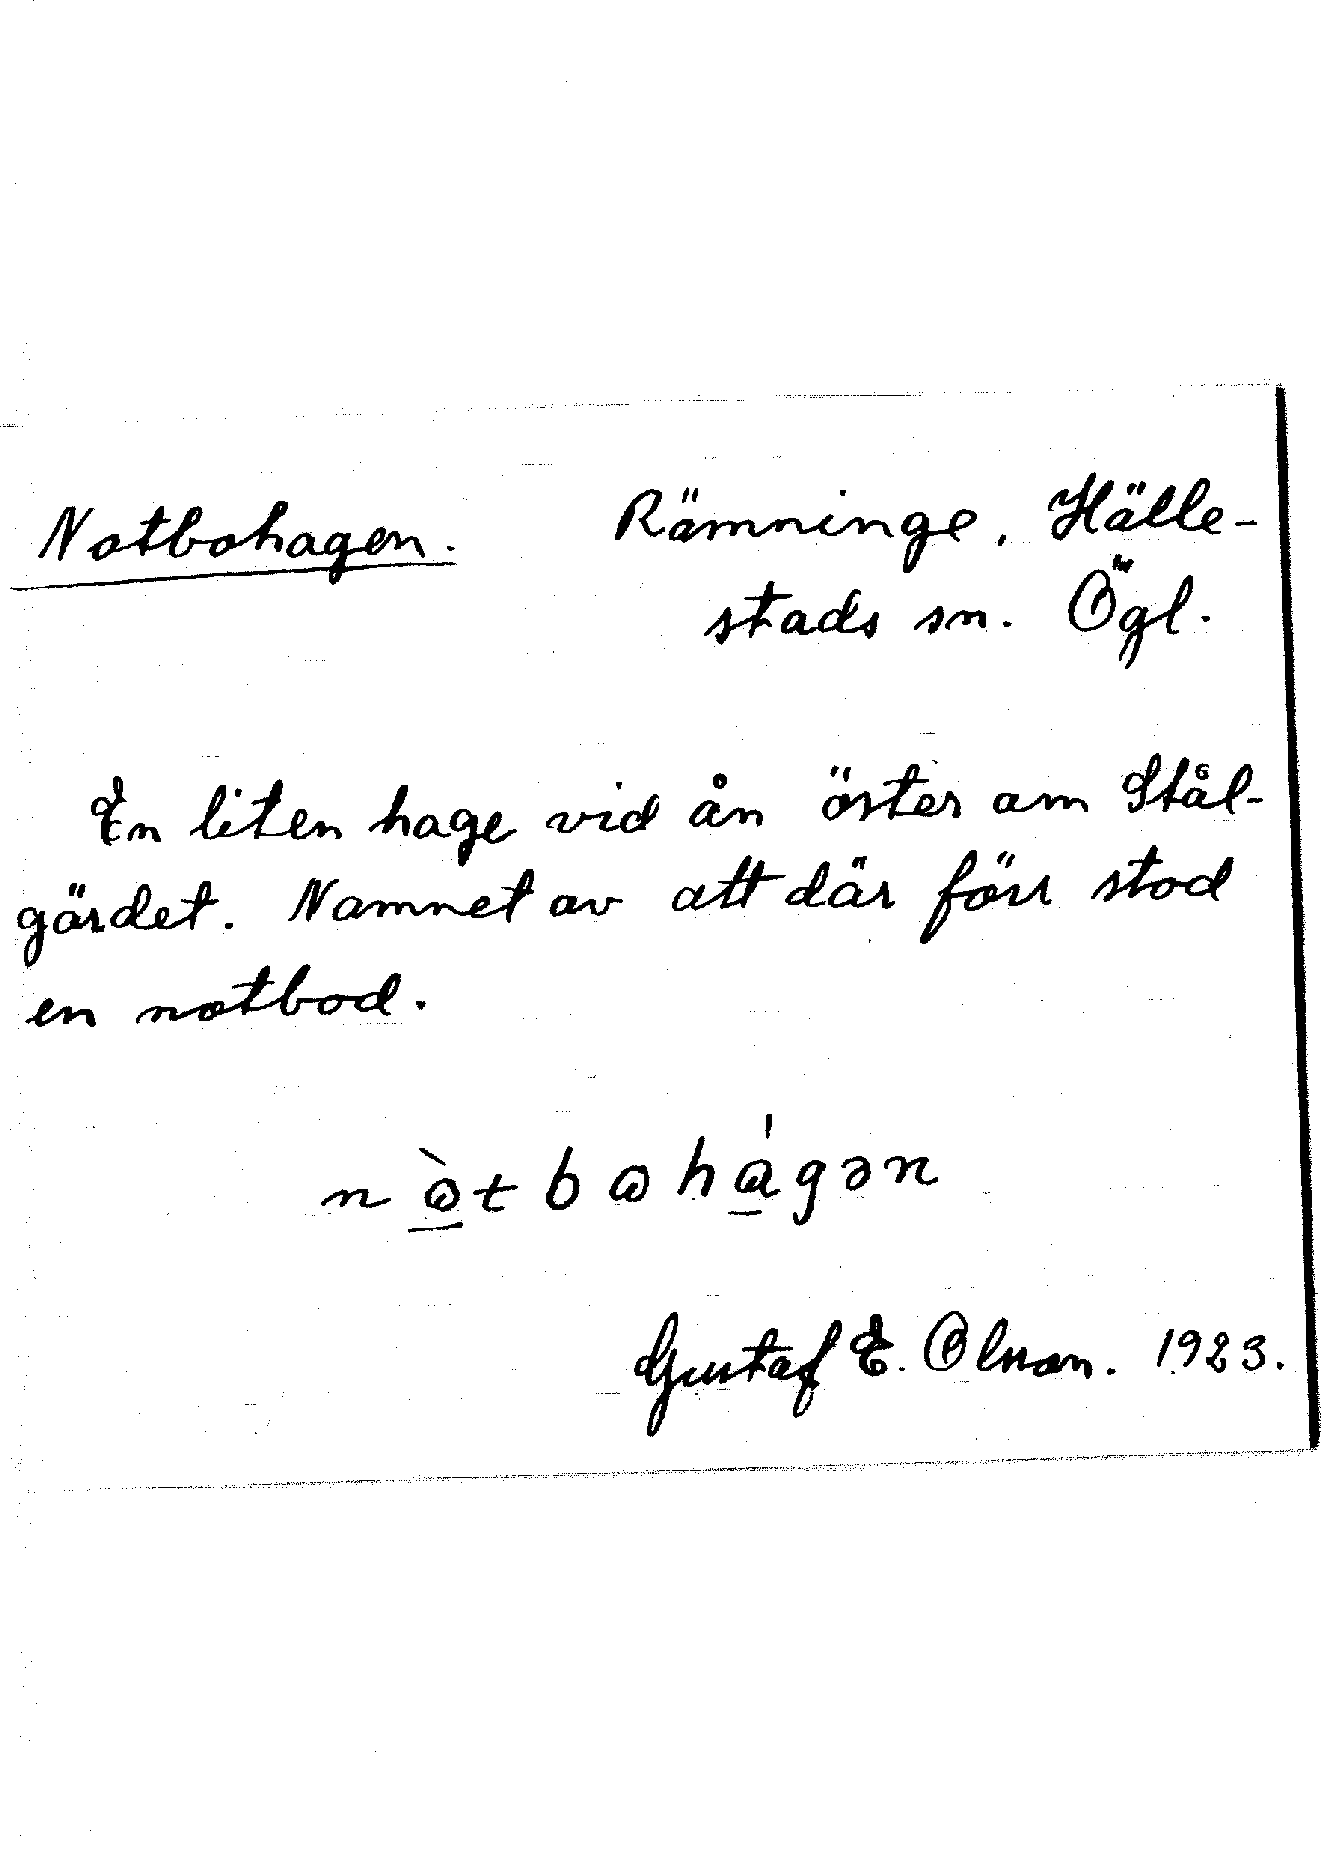 Notbohagen. Rämninge, Hälle-
stads sn. Ögl.
En liten hage vid ån öster om Stål-
gärdet. Namnet av att där förr stod
en notbod.
Gustaf E. Olsson. 1923.